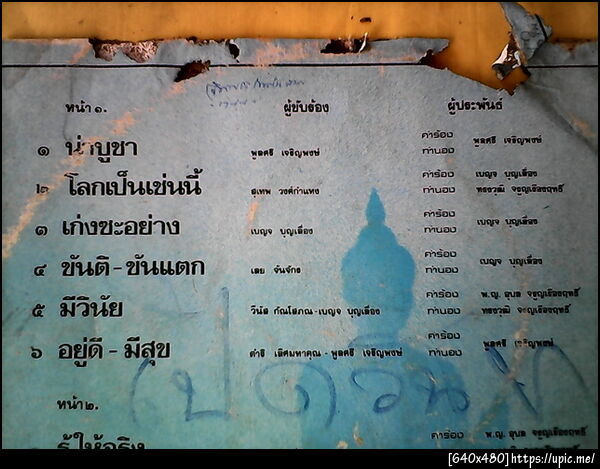 หน้า ๑. ผู้ขับร้อง ผู้ประพันธ์
๑ น่าบูชา พูลศรี เจริญพงษ์ คำร้อง ทำนอง พูลศรี เจริญพงษ์
๒ โลกเป็นเช่นนี้ สุเทพ วงศ์กำแหง คำร้อง เบญจ บุญเลื่อง
ทำนอง ทรงวุฒิ จรูญเรืองฤทธิ์
๓ เก่งซะอย่าง เบญจ บุญเลื่อง คำร้อง ทำนอง เบญจ บุญเลื่อง
๔ ขันติ - ขันแตก เลย จันจักร คำร้อง ทำนอง เบญจ บุญเลื่อง
๕ มีวินัย วีนัส กัณโสภณ - เบญจ บุญเลื่อง คำร้อง พ.ญ. อุบล จรูญเรืองฤทธิ์
ทำนอง ทรงวุฒิ จรูญเรืองฤทธิ์
๖ อยู่ดี - มีสุข ดำริ เลิศมหาคุณ - พูลศรี เจริญพงษ์ คำร้อง ทำนอง พูลศรี เจริญพงษ์
หน้า ๒.
รู้ให้จริง คำร้อง พ.ญ. อุบล จรูญเรืองฤทธิ์
[640x480]https://upic.me/